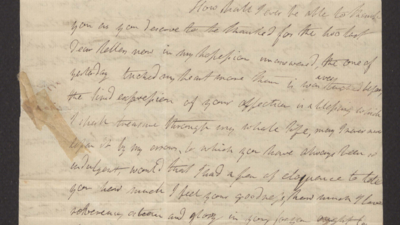 How shall I ever be able to thank
you as you deserve to be thanked for the two last
dear letters now in my possession unanswered, the one of
yesterday touched my heart more than is
the kind expression of your affection is a blessing which
I shall treasure through my whole life, may I never
by my errors, to which you have always been so
indulgent would that I had a pen of eloquence to tell
you how much I feel your goodness, how much I love
reverence esteem and glory in your